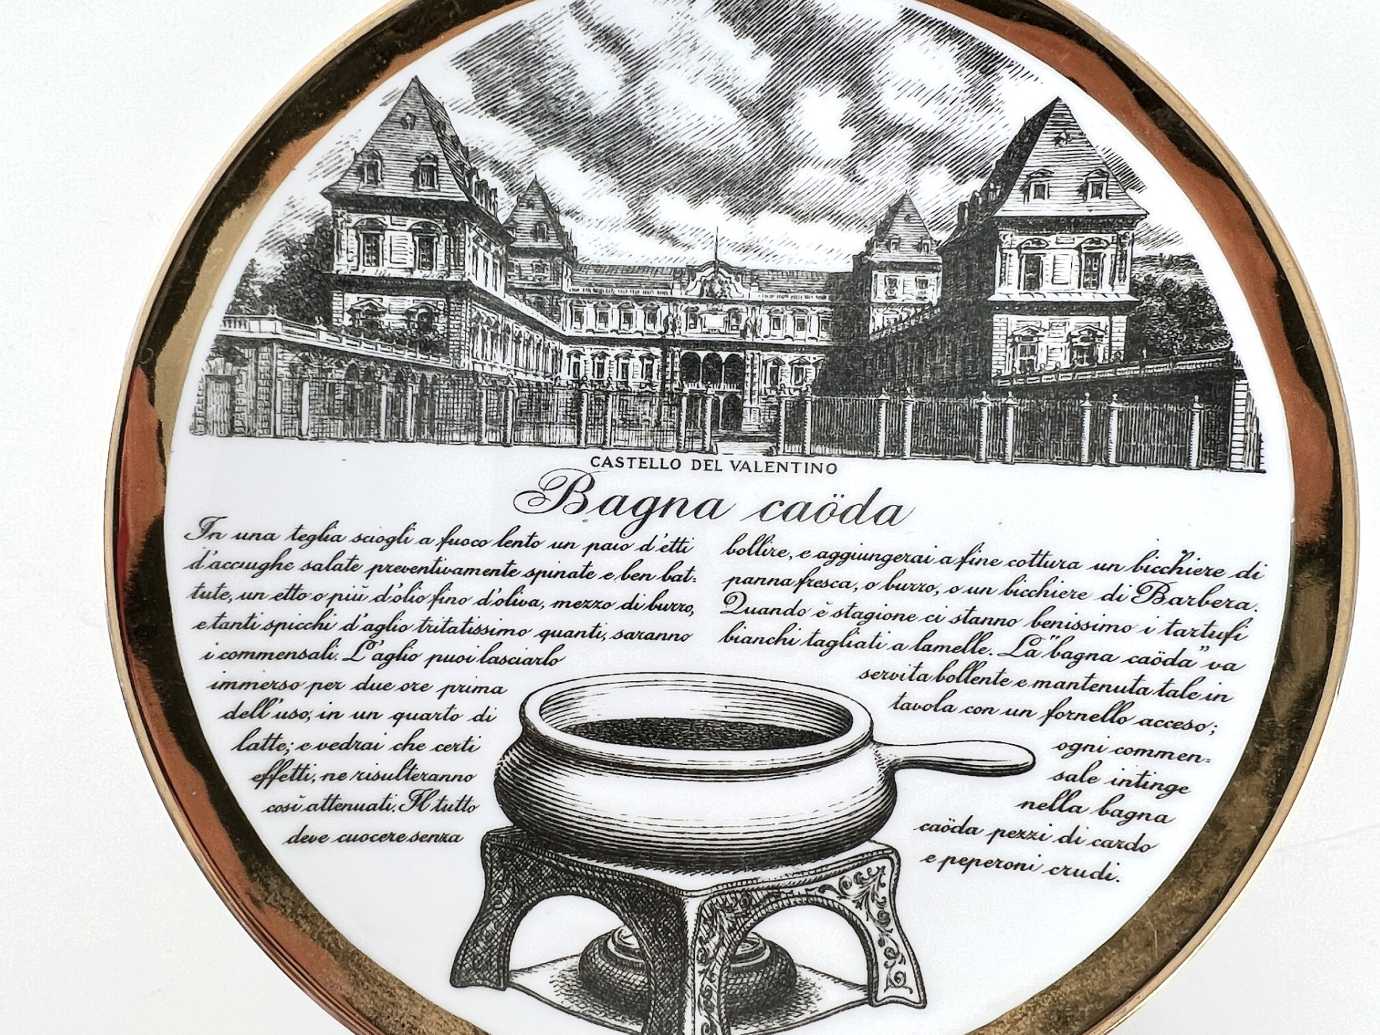 CASTELLO DEL VALENTINO
Bagna caöda
In una teglia sciogli a fuoco lento un paio d'etti
d'acciughe salate preventivamente spinate e ben bat-
tute, un etto o più d'olio fino d'oliva, mezzo di burro,
e tanti spicchi d'aglio tritatissimo quanti, saranno
i commensali. L'aglio puoi lasciarlo
immerso per due ore prima
dell'uso, in un quarto di
latte; e vedrai che certi
effetti, ne risulteranno
così attenuati. Il tutto
deve cuocere senza
bollire, e aggiungerai a fine cottura un bicchiere di
panna fresca, o burro, o un bicchiere di Barbera.
Quando è stagione ci stanno benissimo i tartufi
bianchi tagliati a lamelle. La "bagna caöda" va
servita bollente e mantenuta tale in
tavola con un fornello acceso;
ogni commen-
sale intinge
nella bagna
caöda pezzi di cardo
e peperoni crudi.